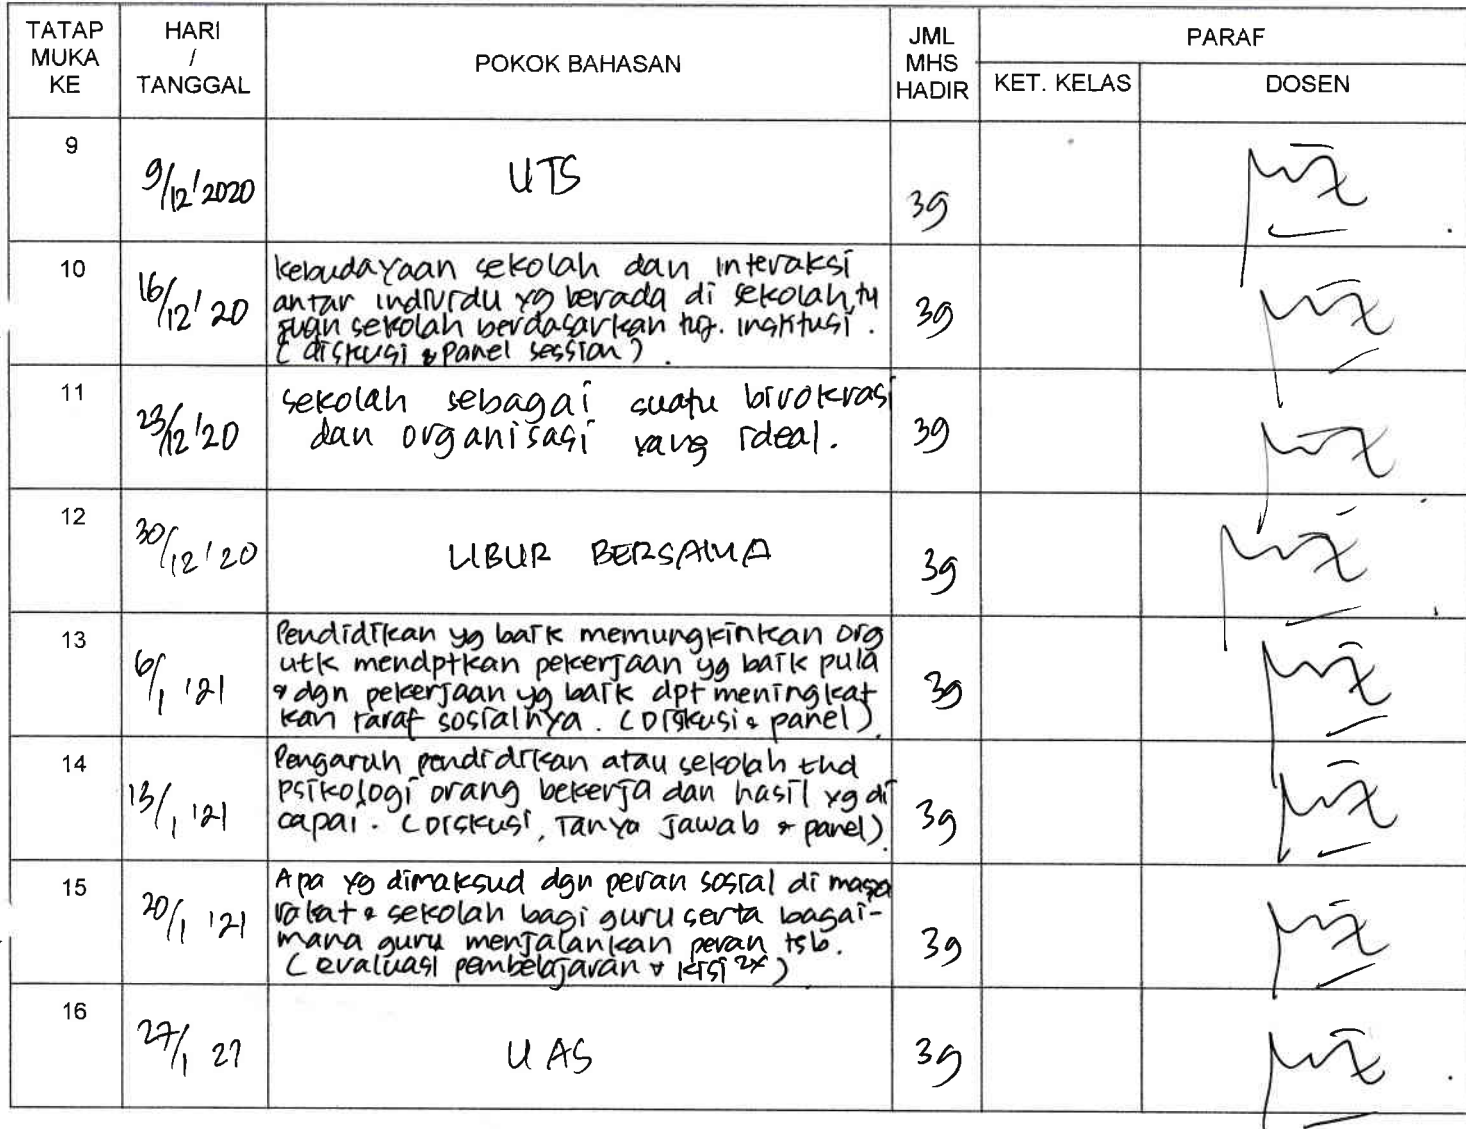 TATAP MUKA KE HARI / TANGGAL POKOK BAHASAN JML MHS HADIR PARAF
KET. KELAS DOSEN
9 9/12'2020 UTS 39
10 16/12'20 kebudayaan sekolah dan interaksi
antar individu yg berada di sekolah, tu
juan sekolah berdasarkan tug. institusi.
(diskusi & panel session). 39
11 23/12'20 sekolah sebagai suatu birokrasi
dan organisasi yang ideal. 39
12 30/12'20 LIBUR BERSAMA 39
13 6/1 '21 Pendidikan yg baik memungkinkan org
utk mendptkan pekerjaan yg baik pula
& dgn pekerjaan yg baik dpt meningkat
kan taraf sosialnya. (Diskusi & panel). 39
14 13/1 '21 Pengaruh pendidikan atau sekolah thd
psikologi orang bekerja dan hasil yg di
capai. (Diskusi, Tanya Jawab & panel). 39
15 20/1 '21 Apa yg dimaksud dgn peran sosial di masya
rakat & sekolah bagi guru serta bagai-
mana guru menjalankan peran tsb.
(evaluasi pembelajaran & kisi 2x) 39
16 27/1 21 UAS 39